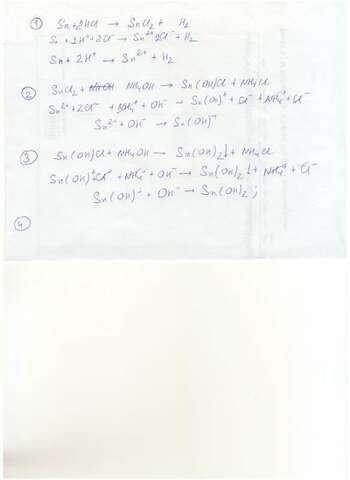 ① Sn + 2HCl → SnCl₂ + H₂
Sn + 2H⁺ + 2Cl⁻ → Sn²⁺ + 2Cl⁻ + H₂
Sn + 2H⁺ → Sn²⁺ + H₂
② SnCl₂ + NH₄OH → Sn(OH)Cl + NH₄Cl
Sn²⁺ + 2Cl⁻ + NH₄⁺ + OH⁻ → Sn(OH)⁺ + Cl⁻ + NH₄⁺ + Cl⁻
Sn²⁺ + OH⁻ → Sn(OH)⁺
③ Sn(OH)Cl + NH₄OH → Sn(OH)₂↓ + NH₄Cl
Sn(OH)⁺ + Cl⁻ + NH₄⁺ + OH⁻ → Sn(OH)₂↓ + NH₄⁺ + Cl⁻
Sn(OH)⁺ + OH⁻ → Sn(OH)₂;
④